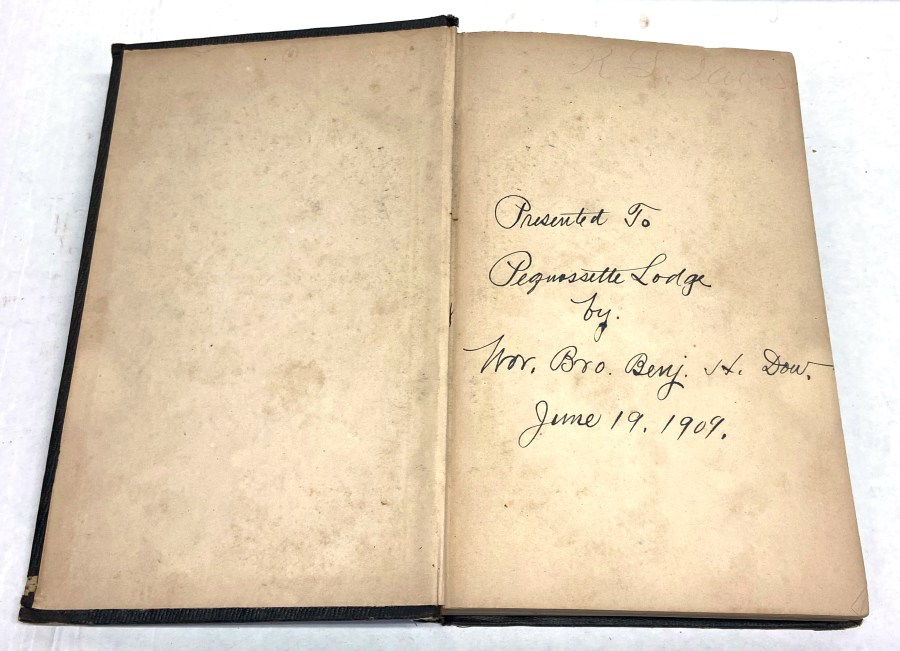 Presented To
Pequossette Lodge
by.
Wor. Bro. Benj. H. Dow.
June 19. 1909.